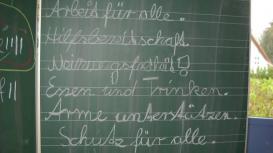 Arbeit für alle.
Hilfsbereitschaft
Essen und Trinken.
Arme unterstützen.
Schutz für alle.